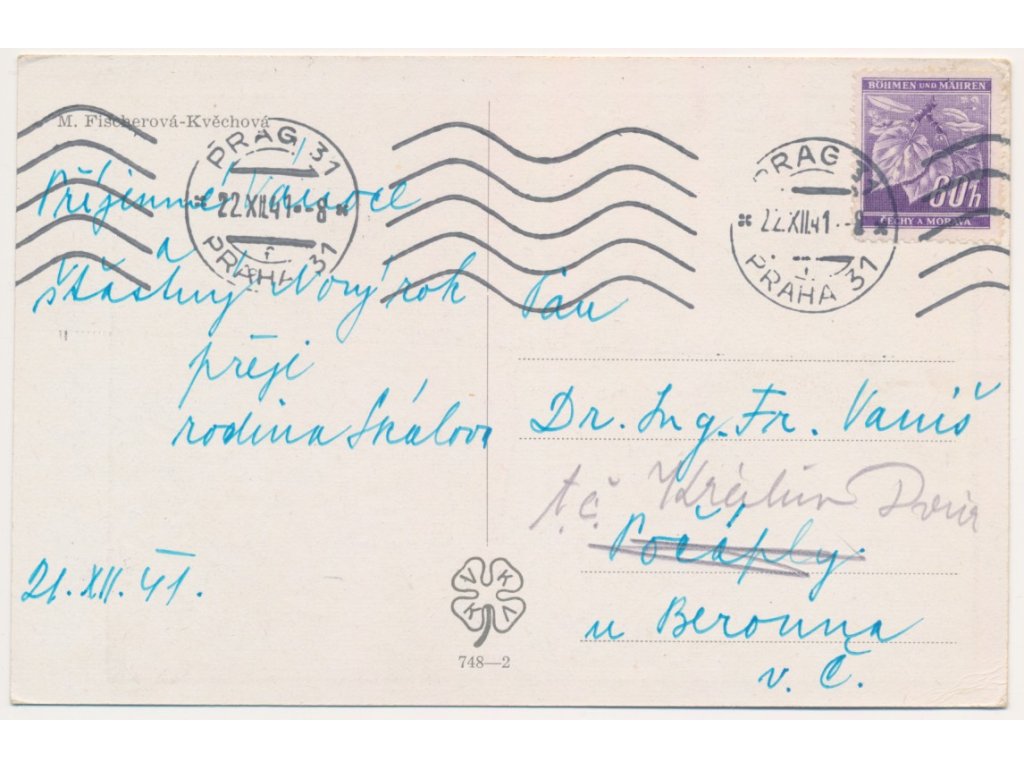 M. Fischerová-Kvěchová
PRAG 31
22.XII.41.-8
PRAHA 31
Příjemné Vánoce
a
šťastný Nový rok
přeji
rodina Skálova
21.XII.41.
BÖHMEN UND MÄHREN
60h
ČECHY A MORAVA
PRAG 31
22.XII.41.-8
PRAHA 31
Pán
Dr. Ing. Fr. Vaniš
t.č. Králův Dvůr
Počáply
u Berouna
v. Č.
V K V K
748—2